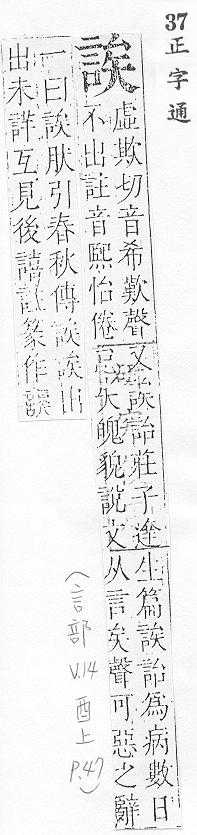 37
正字通
誒
虛欺切音希歎聲又誒詒莊子達生篇誒詒爲病數日
不出註音熙怡倦怠失魄貌說文从言矣聲可惡之辭
一曰誒肰引春秋傳誒誒出
出未詳互見後譆註篆作
(言部
V.14
酉上
P.47)